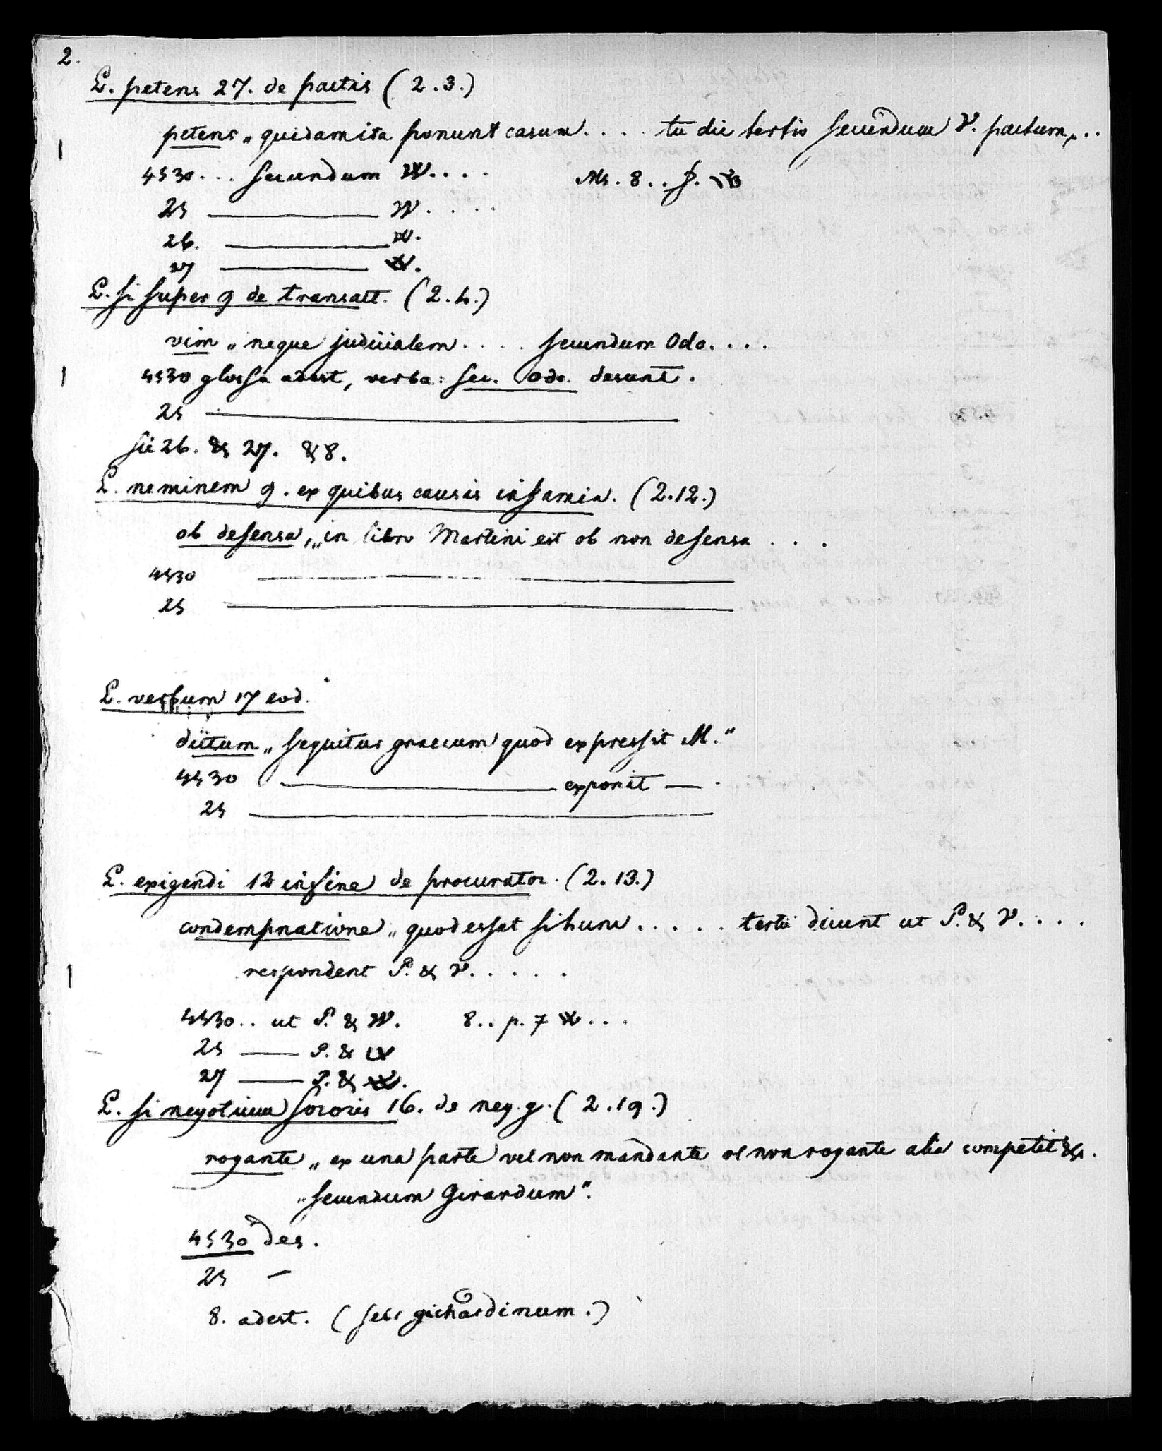 2.
L. petens 27. de pactis (2.3.)
petens „ quidam ita ponunt casum . . . . tu dic tertio secundum V. pactum, . .
4530 . . . secundum W. . . . Ms. 8 . . p. W
25 ———— W. . . .
26. ———— W.
27 ———— W.
L. si super 9 de transact. (2.4.)
vim „ neque judicialem . . . . secundum Odo. . . .
4530 glossa adest, verba: sec. Odo. desunt.
25 ————
sic 26. & 27. & 8.
L. neminem 9. ex quibus causis infamia. (2.12.)
ob defensa, „ in libro Martini est ob non defensa . . .
4530 ————
25 ————
L. verbum 17 eod.
dictum „ sequitur graecum quod expressit M."
4530 ———— exponit — .
25 ————
L. exigendi 12 in fine de procurator. (2.13.)
condempnatione „ quod esset si hunc . . . . . tertii dicunt ut P. & V. . . .
respondent P. & V. . . . .
4530 . . ut P. & W. 8 . . p. 7 W . . .
25 —— P. & W
27 —— P. & W.
L. si negotium sororis 16. de neg. g. (2.19.)
rogante „ ex una parte vel non mandante vel non rogante alia competit &c.
„ secundum Girardum".
4530 des.
25 —
8. adest. (sec gichardinum.)